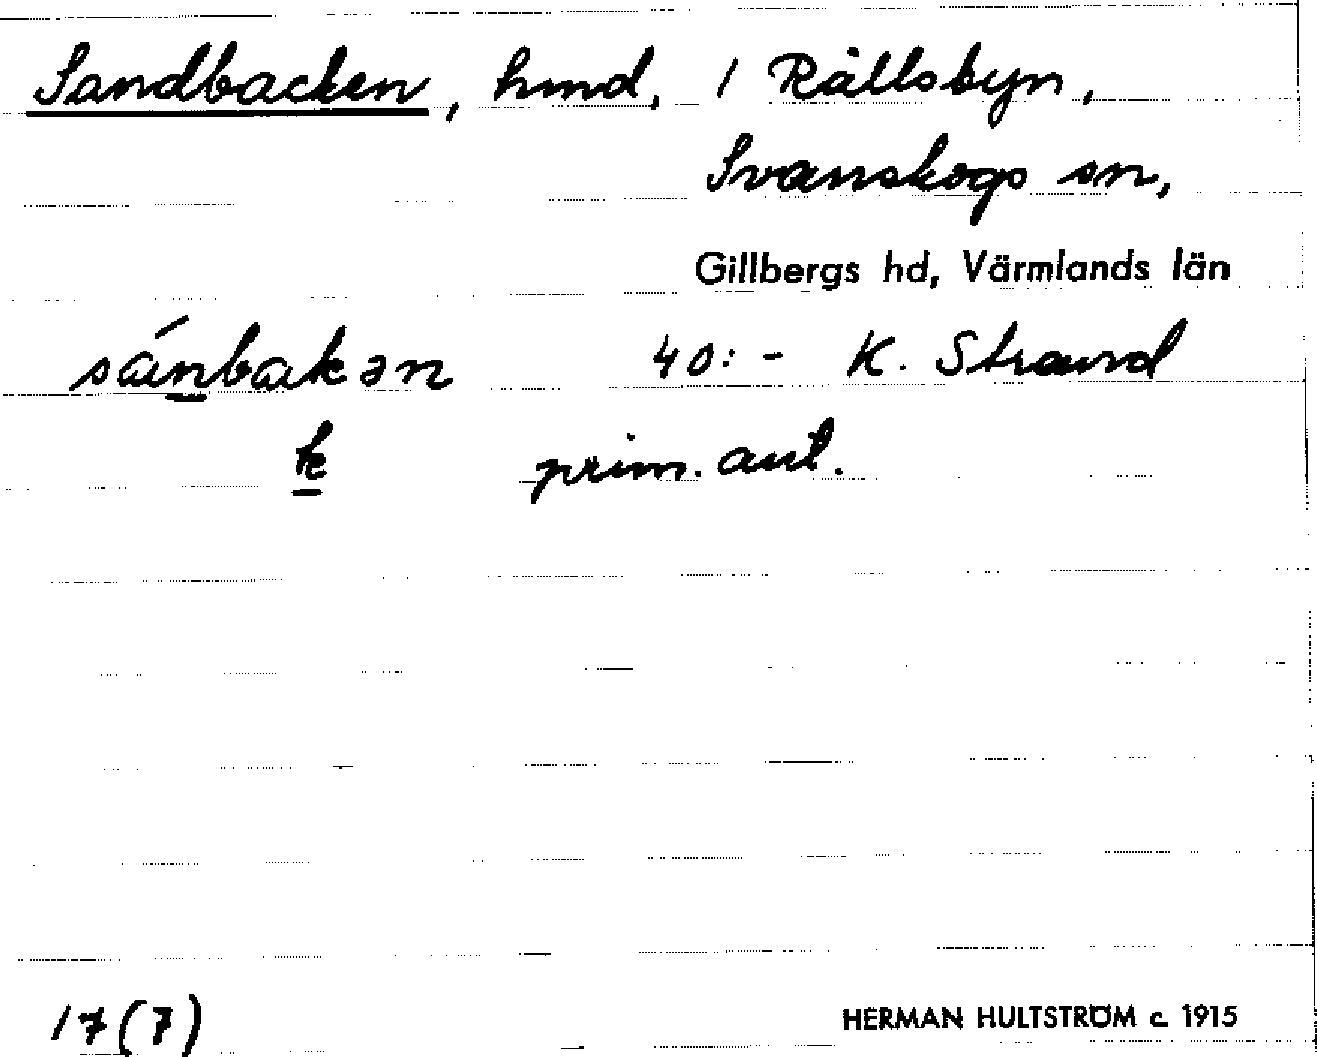 Sandbacken, hmd, 1 Rällsbyn,
Svanskogs sn,
Gillbergs hd, Värmlands län
sánbakən 40:- K. Strand
k prim. aut.
17(7) HERMAN HULTSTRÖM c. 1915